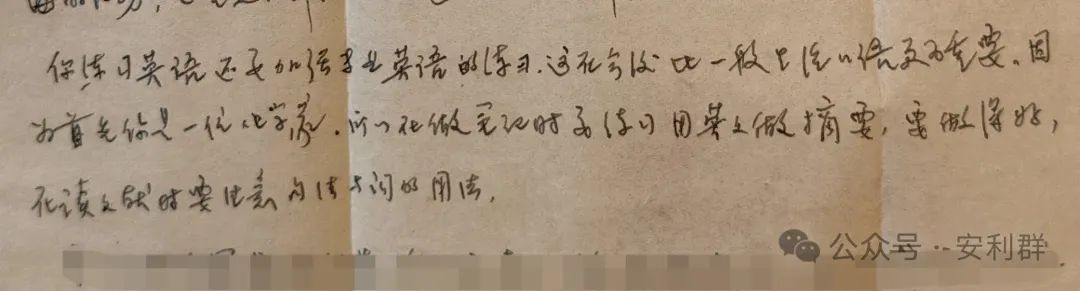 你练习英语还要加强专业英语的练习.这在今后比一般生活口语更为重要.因
为首先你是一位化学家.所以在做笔记时要练习用英文做摘要,要做得好,
在读文献时要注意句法与词的用法.
公众号··安利群